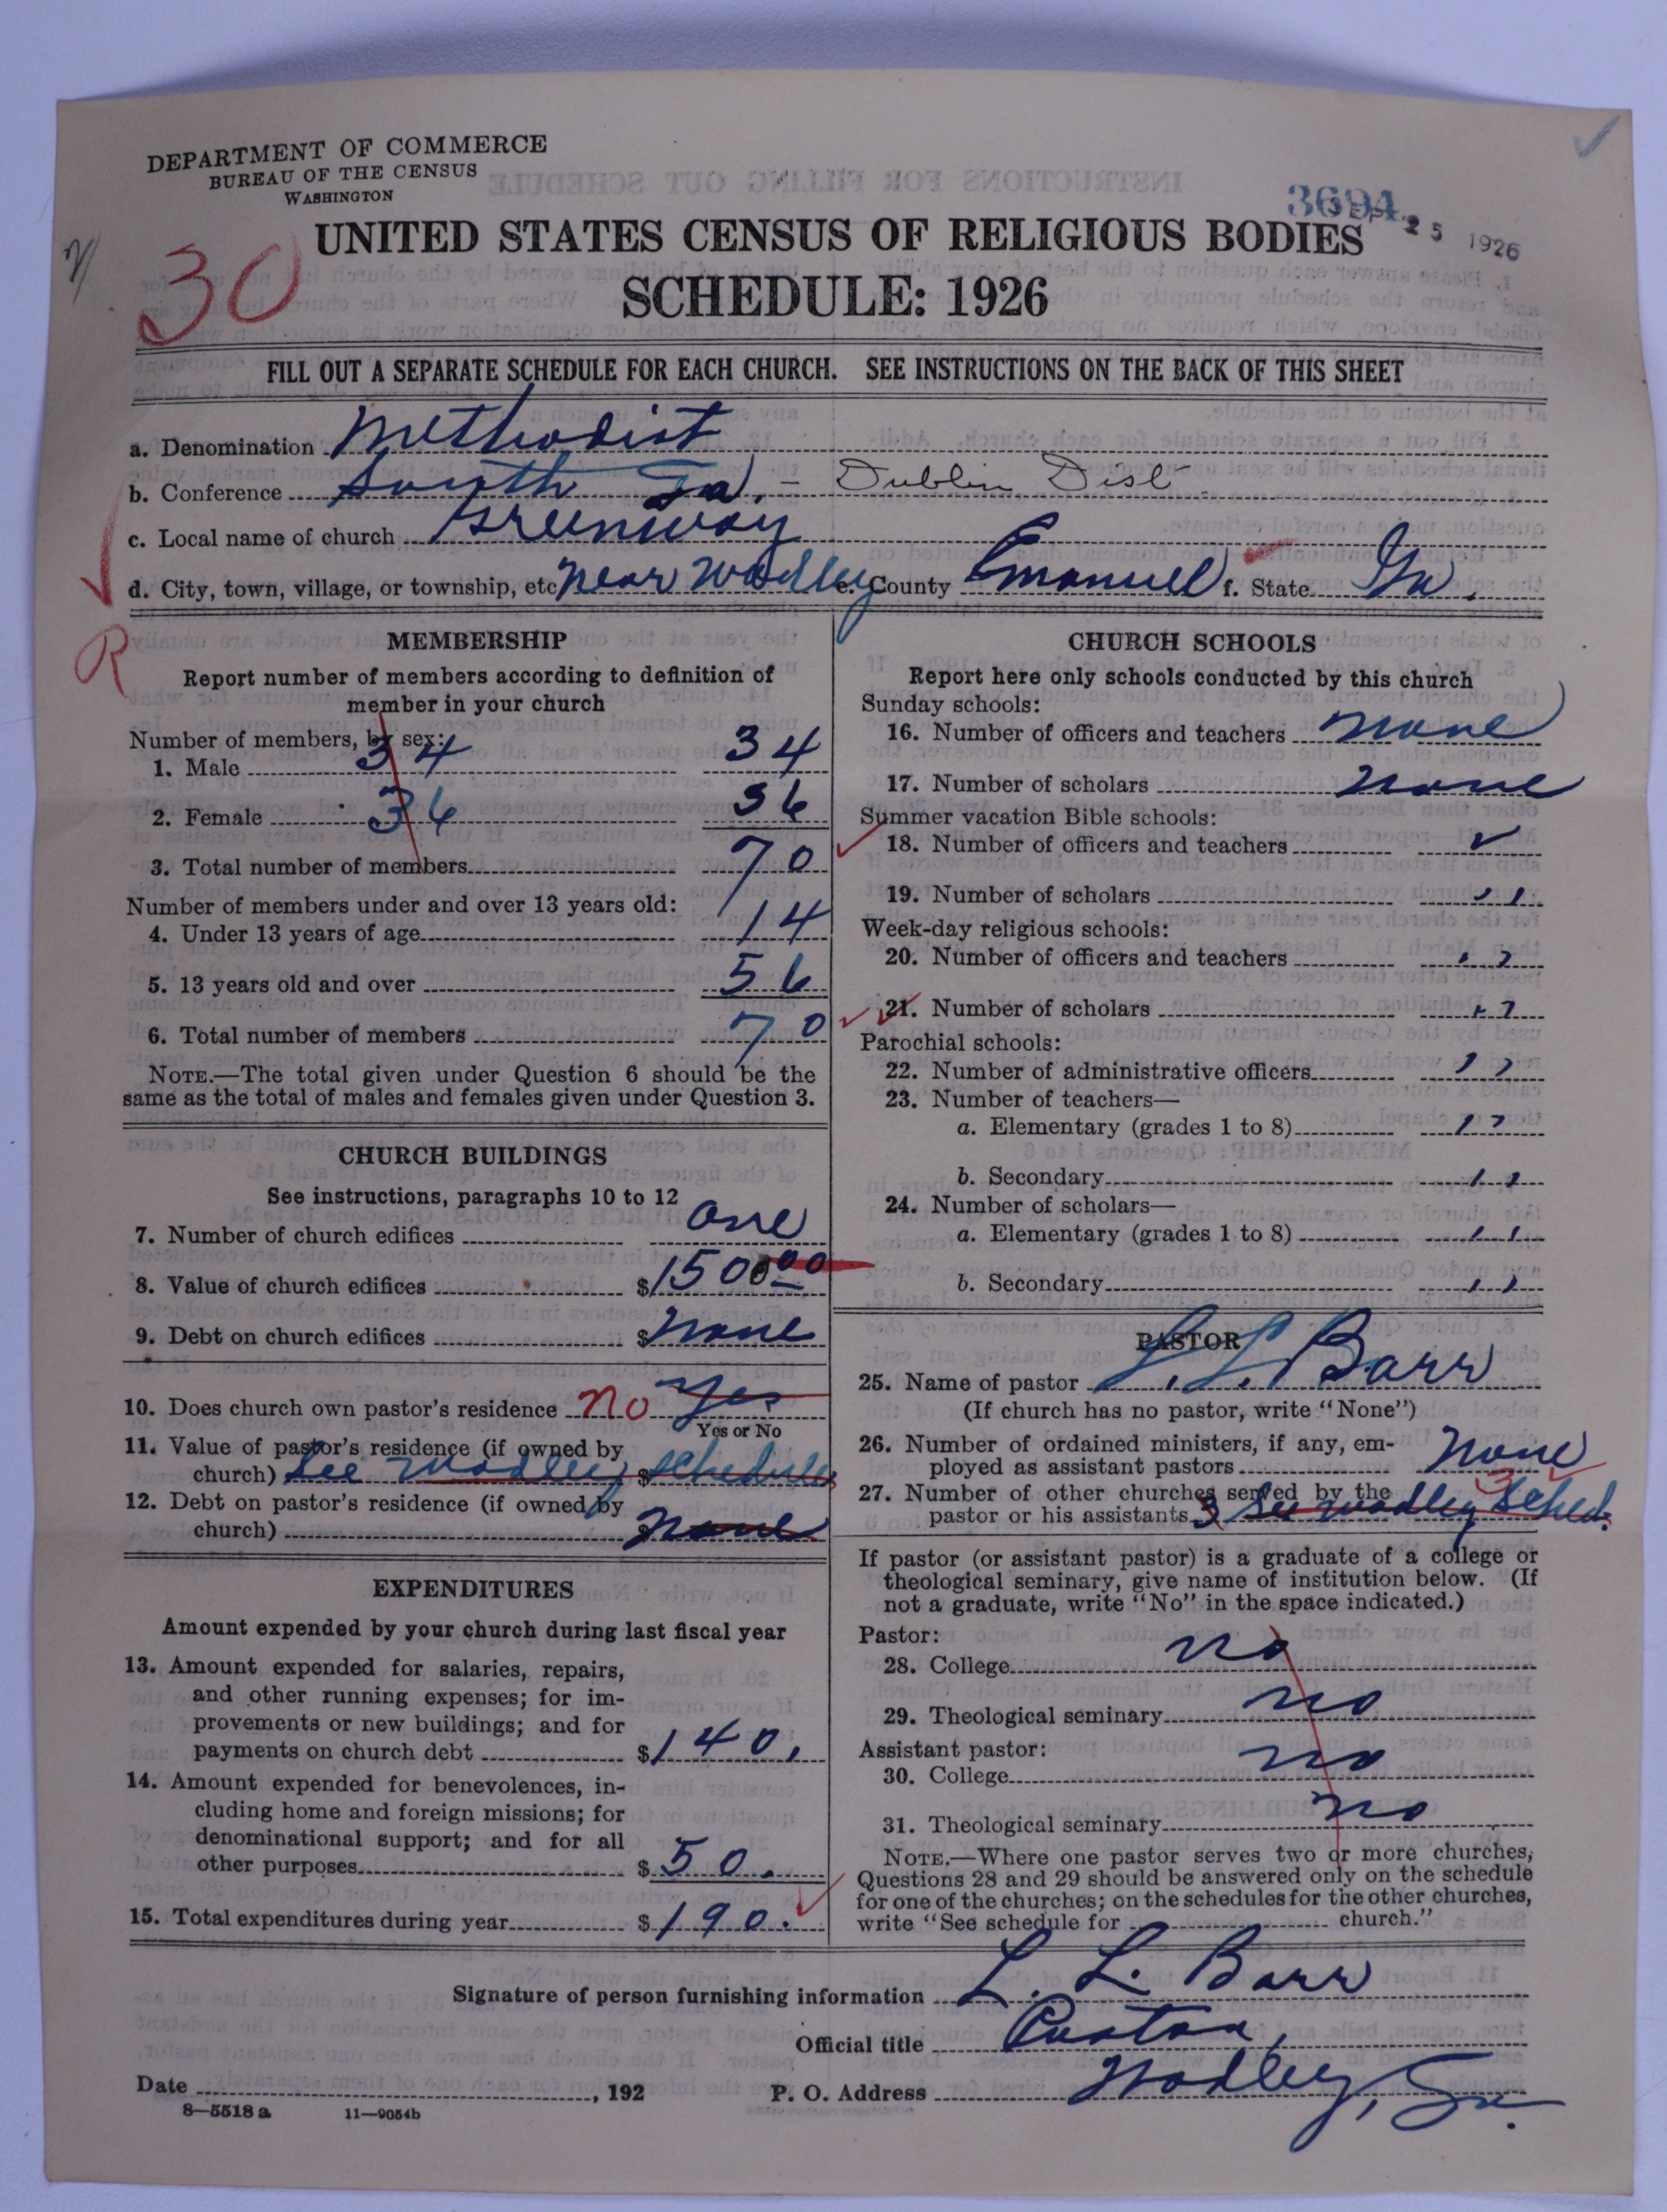 DEPARTMENT OF COMMERCE
BUREAU OF THE CENSUS
WASHINGTON
3694
SEP 25 1926
30
UNITED STATES CENSUS OF RELIGIOUS BODIES
SCHEDULE: 1926
FILL OUT A SEPARATE SCHEDULE FOR EACH CHURCH. SEE INSTRUCTIONS ON THE BACK OF THIS SHEET
a. Denomination Methodist
b. Conference South Ga. - Dublin Dist
c. Local name of church Greenway
d. City, town, village, or township, etc Near Wadley e. County Emanuel f. State Ga.
R
MEMBERSHIP
Report number of members according to definition of
member in your church
Number of members, by sex:
1. Male 34 34
2. Female 36 36
3. Total number of members 70
Number of members under and over 13 years old:
4. Under 13 years of age 14
5. 13 years old and over 56
6. Total number of members 70
NOTE.—The total given under Question 6 should be the
same as the total of males and females given under Question 3.
CHURCH BUILDINGS
See instructions, paragraphs 10 to 12
7. Number of church edifices one
8. Value of church edifices $150000
9. Debt on church edifices $none
10. Does church own pastor's residence no yes
Yes or No
11. Value of pastor's residence (if owned by
church) See Wadley $ schedules
12. Debt on pastor's residence (if owned by
church) $ none
EXPENDITURES
Amount expended by your church during last fiscal year
13. Amount expended for salaries, repairs,
and other running expenses; for im-
provements or new buildings; and for
payments on church debt $140.
14. Amount expended for benevolences, in-
cluding home and foreign missions; for
denominational support; and for all
other purposes $50.
15. Total expenditures during year $190.
CHURCH SCHOOLS
Report here only schools conducted by this church
Sunday schools:
16. Number of officers and teachers none
17. Number of scholars none
Summer vacation Bible schools:
18. Number of officers and teachers
19. Number of scholars "
Week-day religious schools:
20. Number of officers and teachers "
21. Number of scholars "
Parochial schools:
22. Number of administrative officers "
23. Number of teachers—
a. Elementary (grades 1 to 8) "
b. Secondary "
24. Number of scholars—
a. Elementary (grades 1 to 8) "
b. Secondary "
PASTOR
25. Name of pastor L. L. Barr
(If church has no pastor, write "None")
26. Number of ordained ministers, if any, em-
ployed as assistant pastors none
27. Number of other churches served by the
pastor or his assistants 3 See Wadley Sched. 3
If pastor (or assistant pastor) is a graduate of a college or
theological seminary, give name of institution below. (If
not a graduate, write "No" in the space indicated.)
Pastor:
28. College no
29. Theological seminary no
Assistant pastor:
30. College no
31. Theological seminary no
NOTE.—Where one pastor serves two or more churches,
Questions 28 and 29 should be answered only on the schedule
for one of the churches; on the schedules for the other churches,
write "See schedule for church."
Signature of person furnishing information L. L. Barr
Official title Pastor,
Date , 192 P. O. Address Wadley, Ga.
8—5518 a 11—9054b